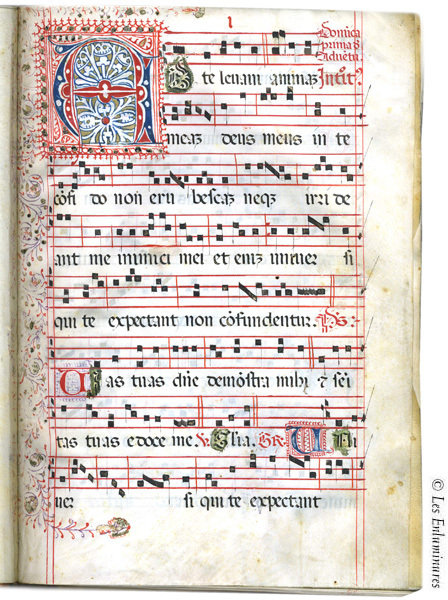 I
Domica
prima d
Aduetu
A D te leuaui animaz Introit?
meaz deus meus in te
cōfi do non eru bescaz neqz irri de
ant me inimici mei et eniz uniuer si
qui te expectant non cōfundentur. Ps.
Uias tuas dn̄e demōstra mihi ⁊ sēi
tas tuas edoce me ℣ Glia. GR. UNi
uer si qui te expectant
© Les Enluminures